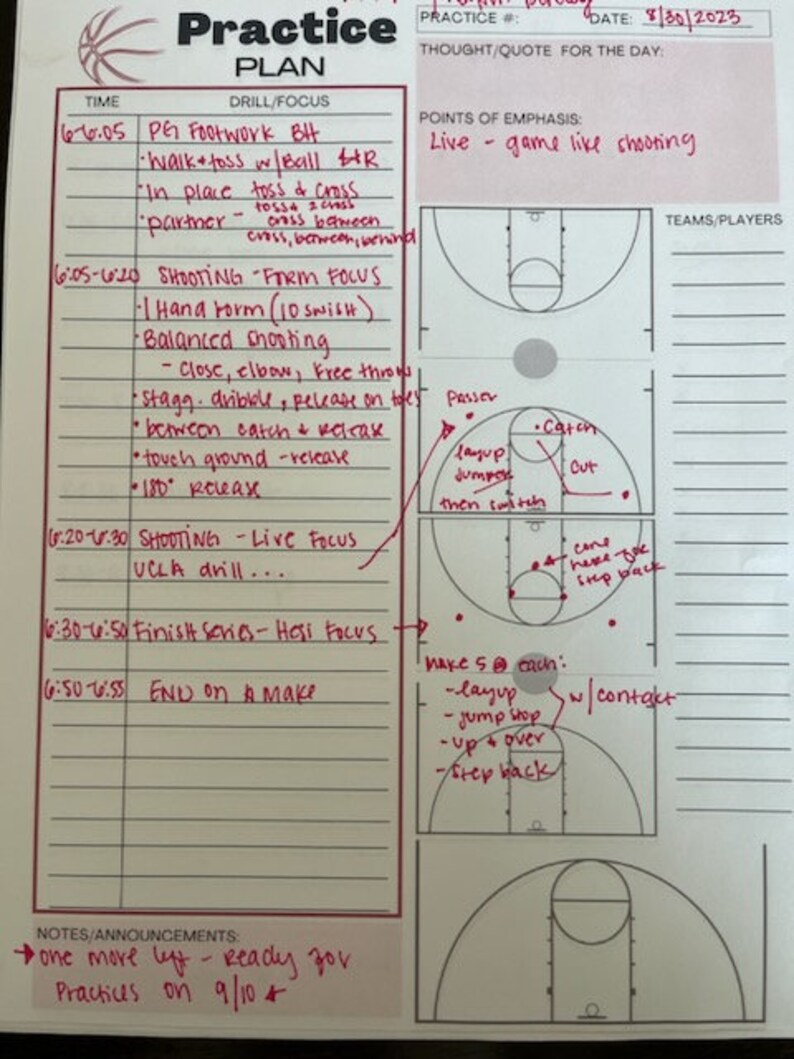 Practice
PLAN
PRACTICE #:
DATE: 8/30/2023
THOUGHT/QUOTE FOR THE DAY:
POINTS OF EMPHASIS:
Live - game like shooting
TIME DRILL/FOCUS
6-6:05 PG FOOTWORK BH
• Walk + toss w/Ball L+R
• In place toss & cross
toss + 2 cross
• partner - cross between
cross, between, behind
6:05-6:20 SHOOTING - Form FOCUS
• 1 Hand Form (10 SWISH)
• Balanced shooting
- Close, elbow, Free throws
• Stagg. dribble, release on toes
• between catch & release
• touch ground - release
• 180° release
6:20-6:30 SHOOTING - Live Focus
UCLA drill...
6:30-6:50 Finish Series - Hesi Focus
6:50-6:55 END on A Make
TEAMS/PLAYERS
Passer
• Catch
layup
Jumper
Cut
then switch
come
here for
step back
make 5 @ each:
- layup
w/contact
- jump stop
- up & over
- Step back
NOTES/ANNOUNCEMENTS:
→ one more left - Ready for
Practices on 9/10